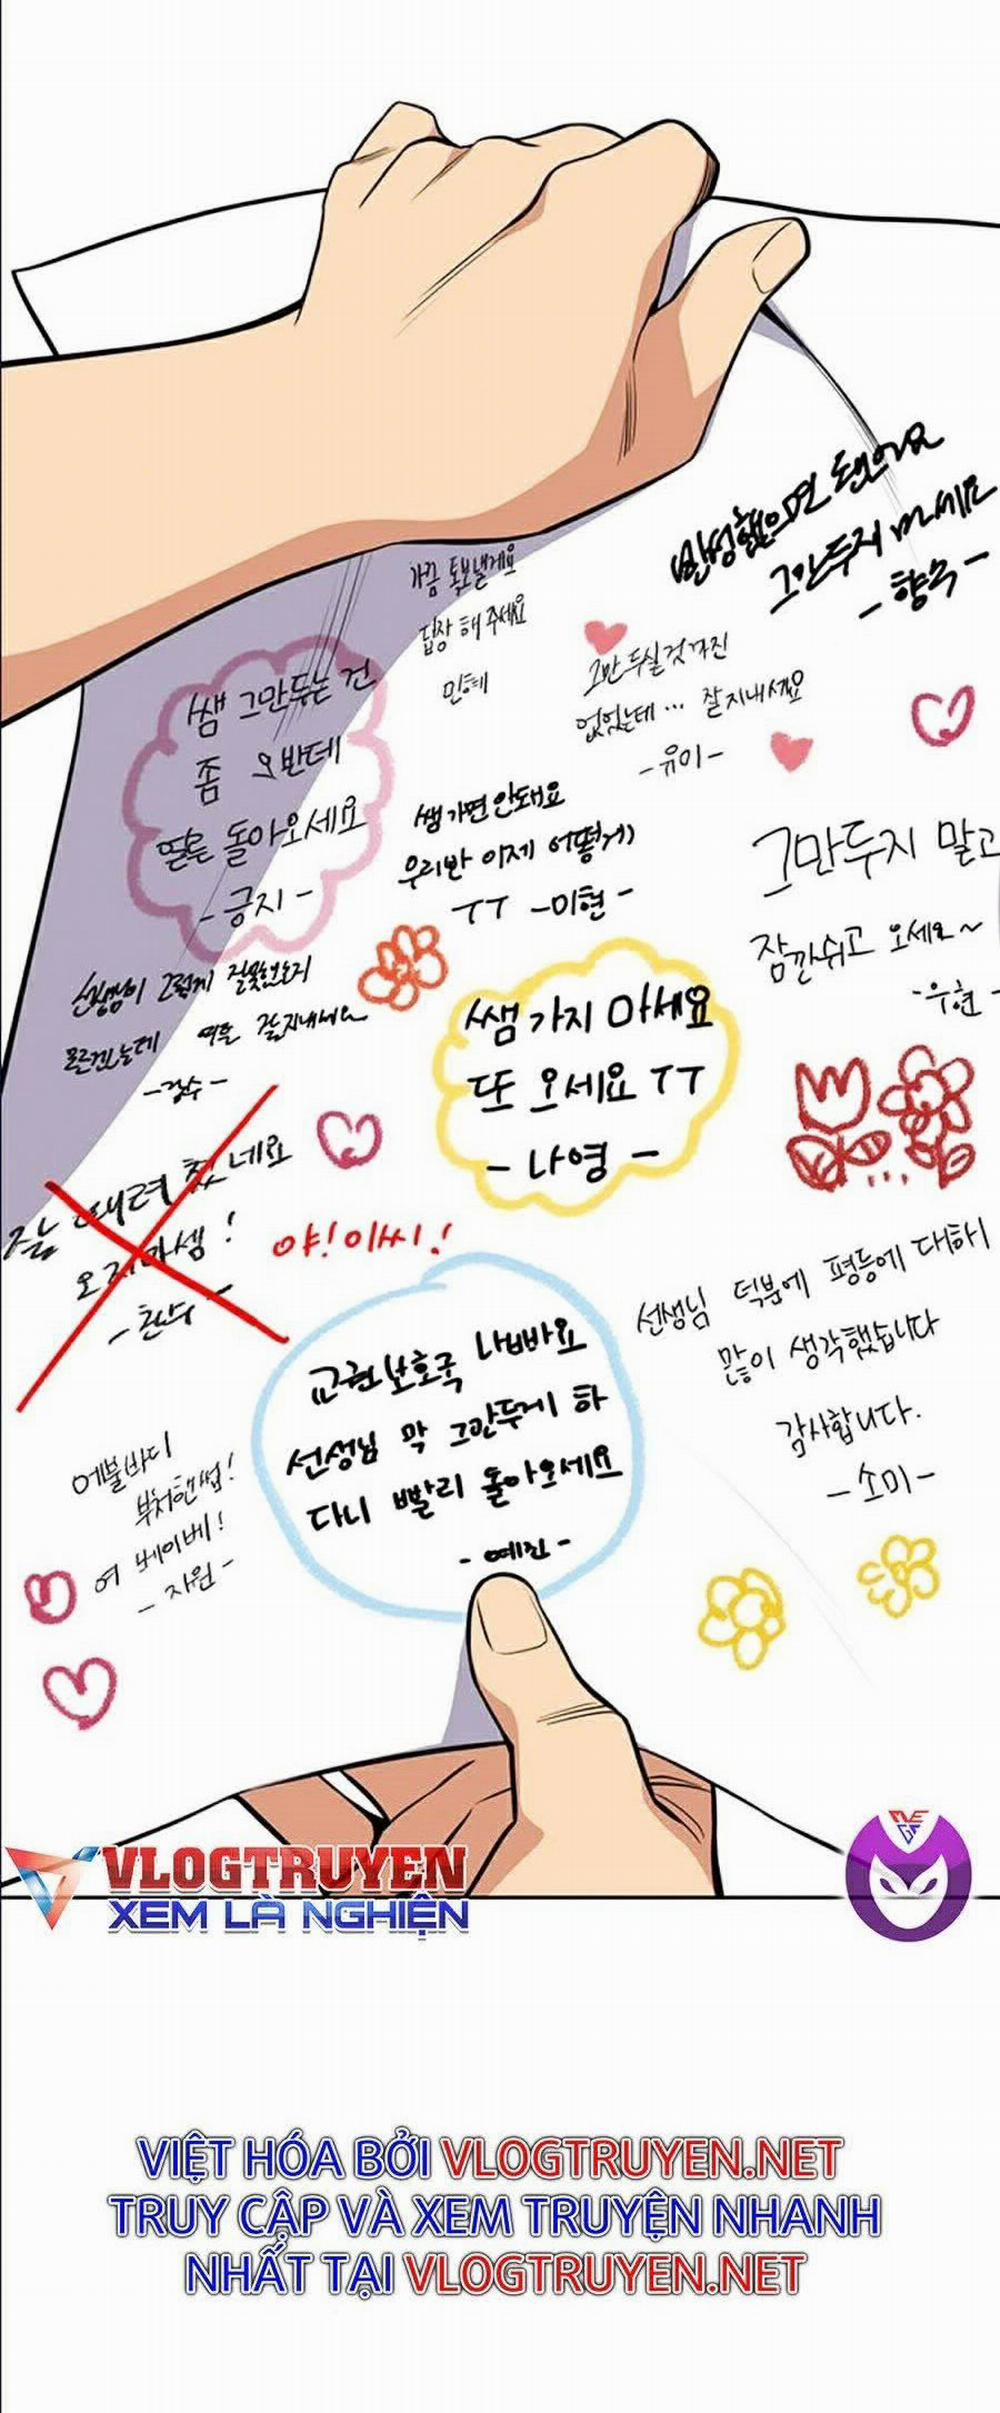 반성했으면 됐어요
그만두지 마세요
- 향숙 -
가끔 톡보낼게요
답장 해 주세요
민혜
그만 두실 것 까진
없었는데... 잘 지내세요
- 유이 -
쌤 그만두는 건
좀 오반데
얼른 돌아오세요
- 긍지 -
쌤 가면 안돼요
우리반 이제 어떻게
ㅜㅜ - 미현 -
그만두지 말고
잠깐 쉬고 오세요~
- 우현 -
선생님이 그렇게 잘못했는지
모르겠는데 여튼 잘지내세요
쌤 가지 마세요
또 오세요 ㅜㅜ
- 나영 -
잘 때려 쳤네요
오지마셈!
야! 이씨!
교권보호국 나빠요
선생님 막 그만두게 하
다니 빨리 돌아오세요
- 예진 -
선생님 덕분에 평등에 대하
많이 생각했습니다
감사합니다.
- 소미 -
에블바디
부처핸썹!
어 베이베!
- 지원 -
VLOGTRUYEN
XEM LÀ NGHIỆN
VIỆT HÓA BỞI VLOGTRUYEN.NET
TRUY CẬP VÀ XEM TRUYỆN NHANH
NHẤT TẠI VLOGTRUYEN.NET